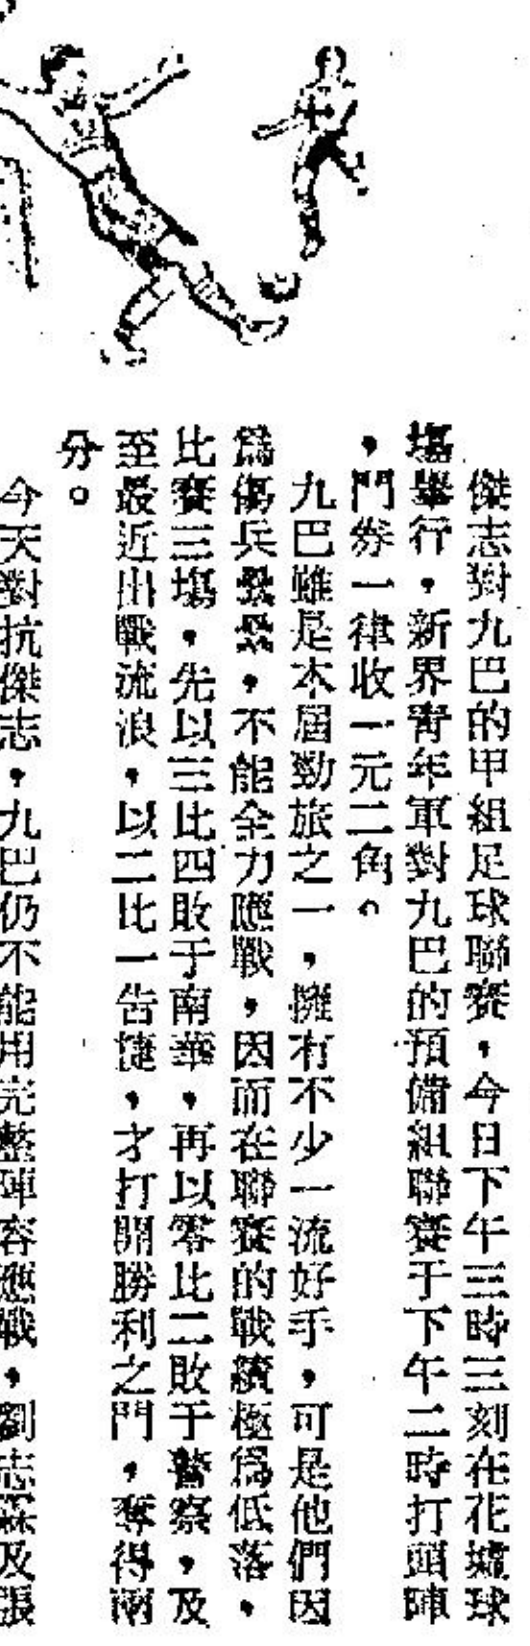 傑志對九巴的甲組足球聯賽，今日下午三時三刻在花墟球
塲舉行，新界青年軍對九巴的預備組聯賽于下午二時打頭陣
，門券一律收一元二角。
九巴雖是本屆勁旅之一，擁有不少一流好手，可是他們因
爲傷兵纍纍，不能全力應戰，因而在聯賽的戰績極爲低落，
比賽三塲，先以三比四敗于南華，再以零比二敗于警察，及
至最近出戰流浪，以二比一告捷，才打開勝利之門，奪得兩
分。
今天對抗傑志，九巴仍不能用完整陣容應戰，劉志霖及張